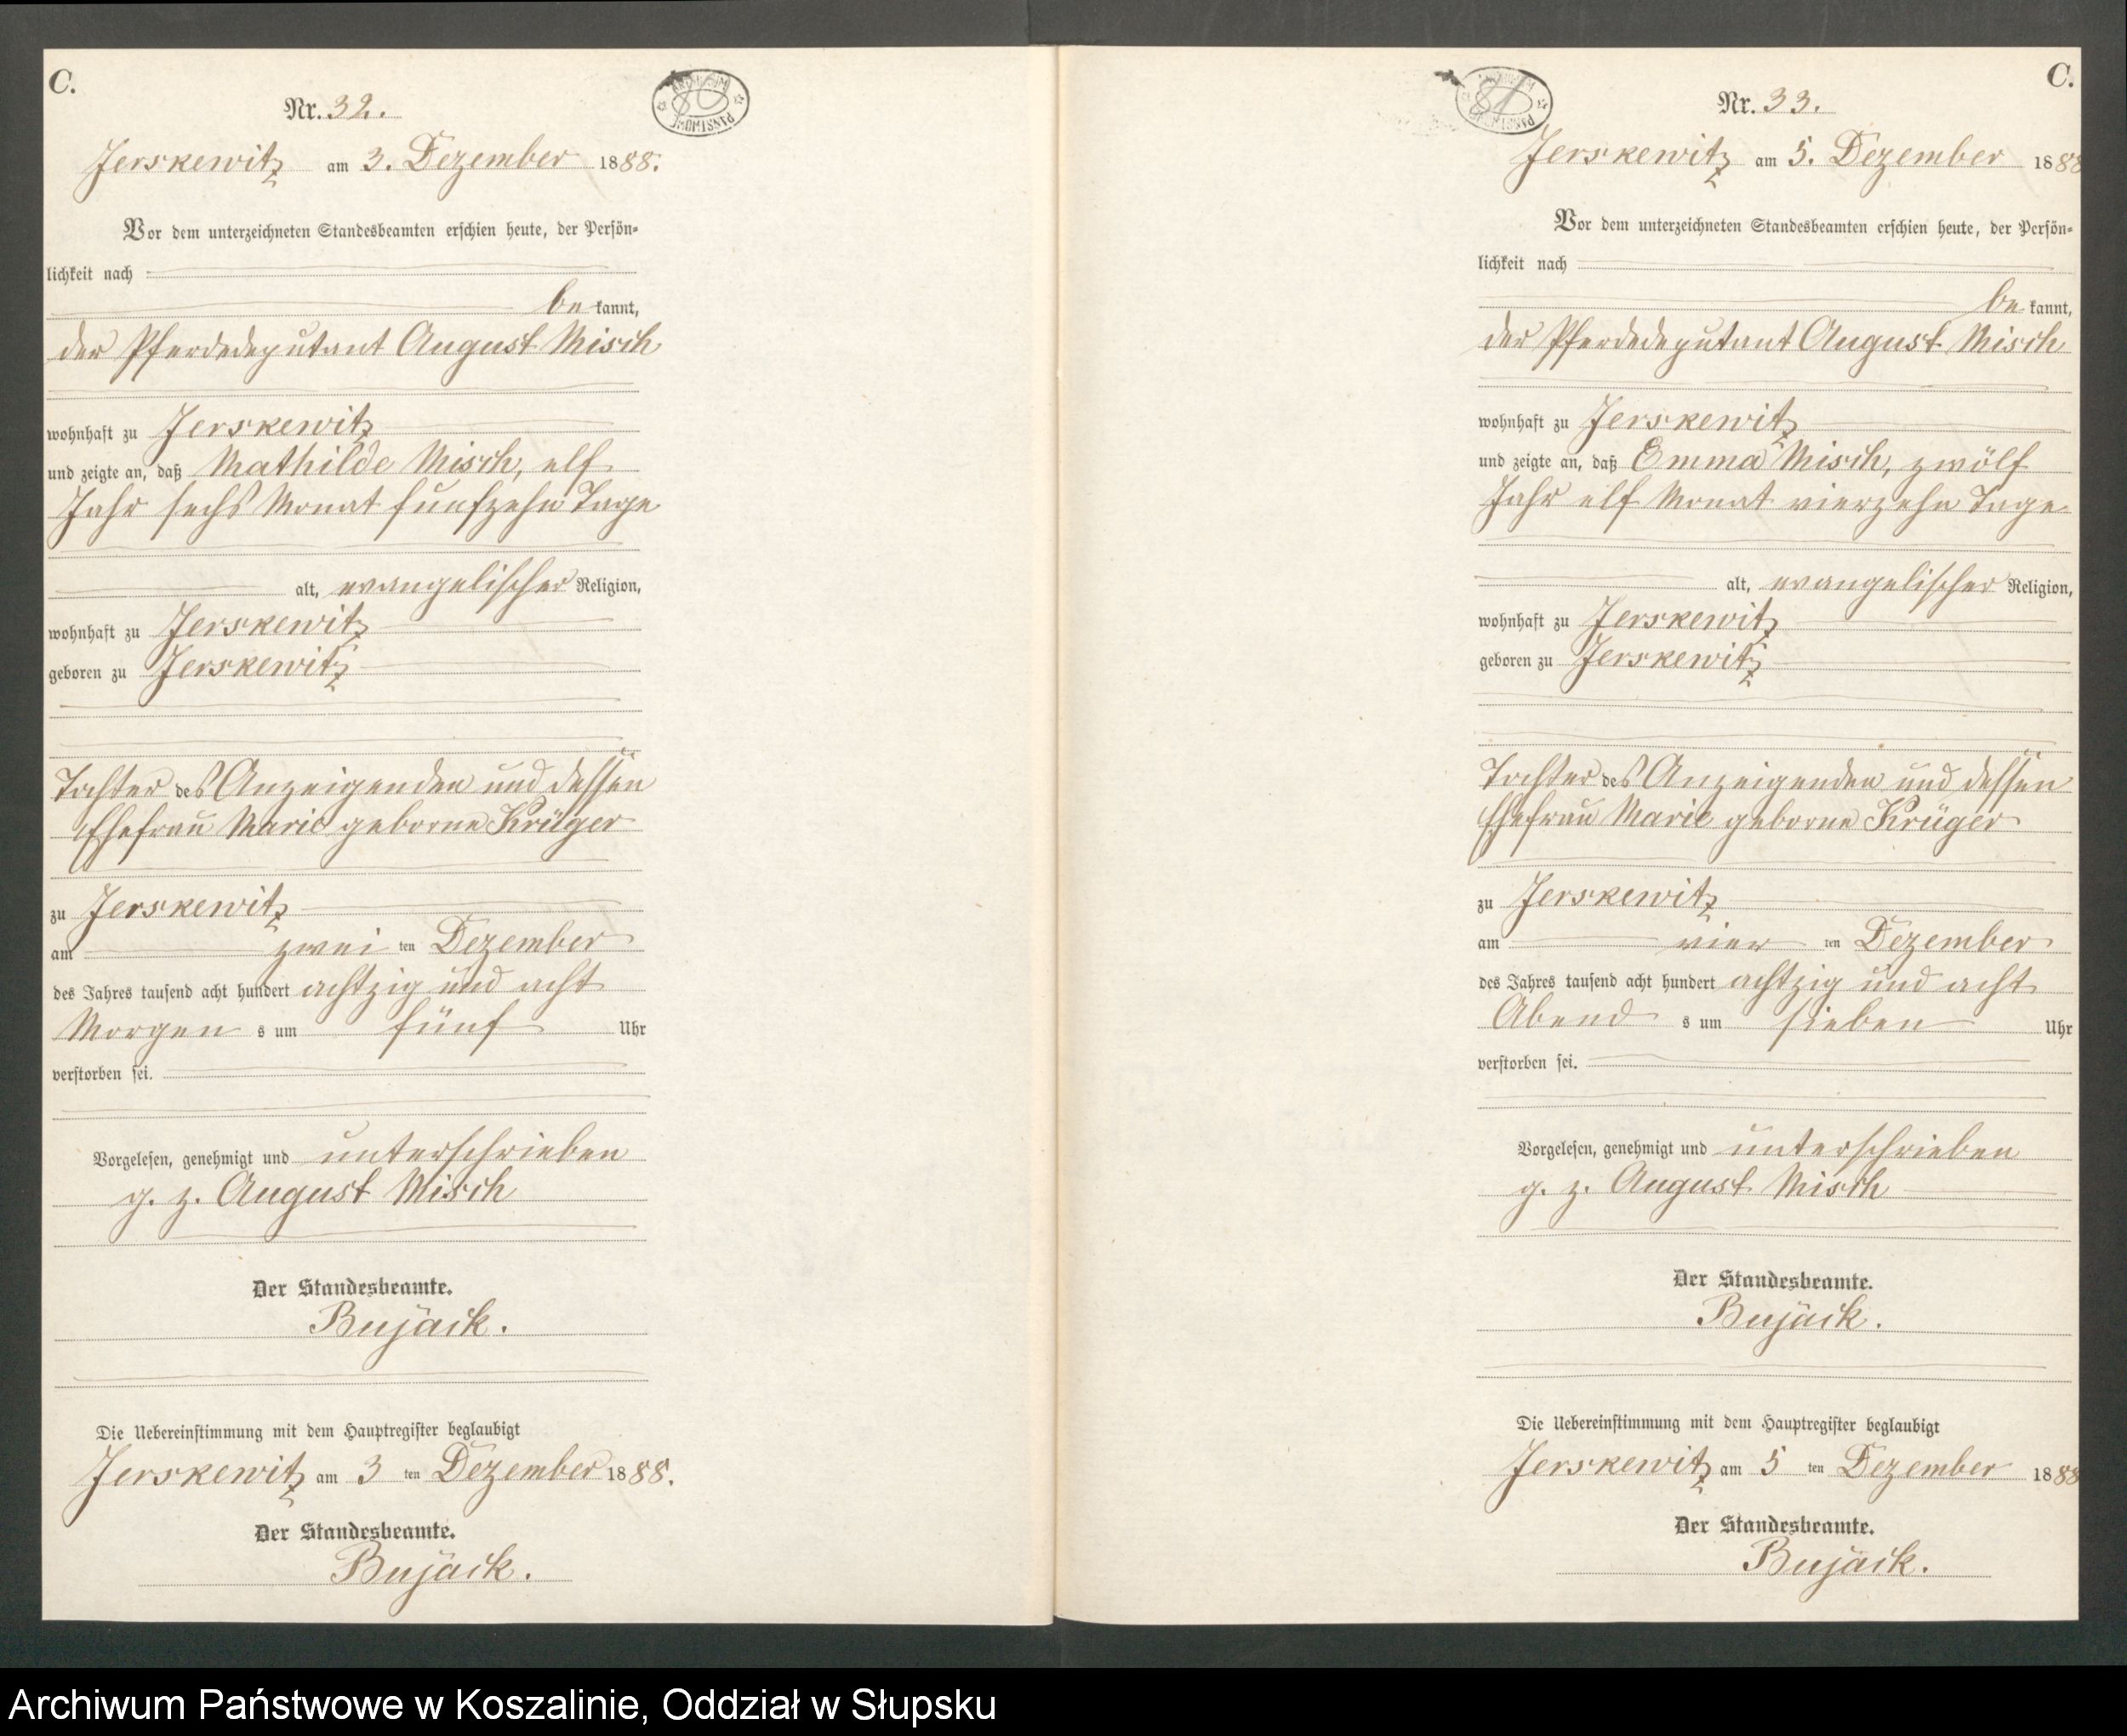 C.
Nr. 32.
Jerskewitz am 3. Dezember 1888.
Vor dem unterzeichneten Standesbeamten erschien heute, der Persön-
lichkeit nach
be kannt,
der Pferdedeputant August Misch
wohnhaft zu Jerskewitz
und zeigte an, daß Mathilde Misch, elf
Jahr sechs Monat fünfzehn Tage
alt, evangelischer Religion,
wohnhaft zu Jerskewitz
geboren zu Jerskewitz
Tochter des Anzeigenden und dessen
Ehefrau Marie geborne Krüger
zu Jerskewitz
am zwei ten Dezember
des Jahres tausend acht hundert achtzig und acht
Morgen s um fünf Uhr
verstorben sei.
Vorgelesen, genehmigt und unterschrieben
g. z. August Misch
Der Standesbeamte.
Bujack.
Die Uebereinstimmung mit dem Hauptregister beglaubigt
Jerskewitz am 3 ten Dezember 1888.
Der Standesbeamte.
Bujack.
C.
Nr. 33.
Jerskewitz am 5. Dezember 1888
Vor dem unterzeichneten Standesbeamten erschien heute, der Persön-
lichkeit nach
be kannt,
der Pferdedeputant August Misch
wohnhaft zu Jerskewitz
und zeigte an, daß Emma Misch, zwölf
Jahr elf Monat vierzehn Tage
alt, evangelischer Religion,
wohnhaft zu Jerskewitz
geboren zu Jerskewitz
Tochter des Anzeigenden und dessen
Ehefrau Marie geborne Krüger
zu Jerskewitz
am vier ten Dezember
des Jahres tausend acht hundert achtzig und acht
Abend s um sieben Uhr
verstorben sei.
Vorgelesen, genehmigt und unterschrieben
g. z. August Misch
Der Standesbeamte.
Bujack.
Die Uebereinstimmung mit dem Hauptregister beglaubigt
Jerskewitz am 5 ten Dezember 1888
Der Standesbeamte.
Bujack.
Archiwum Państwowe w Koszalinie, Oddział w Słupsku